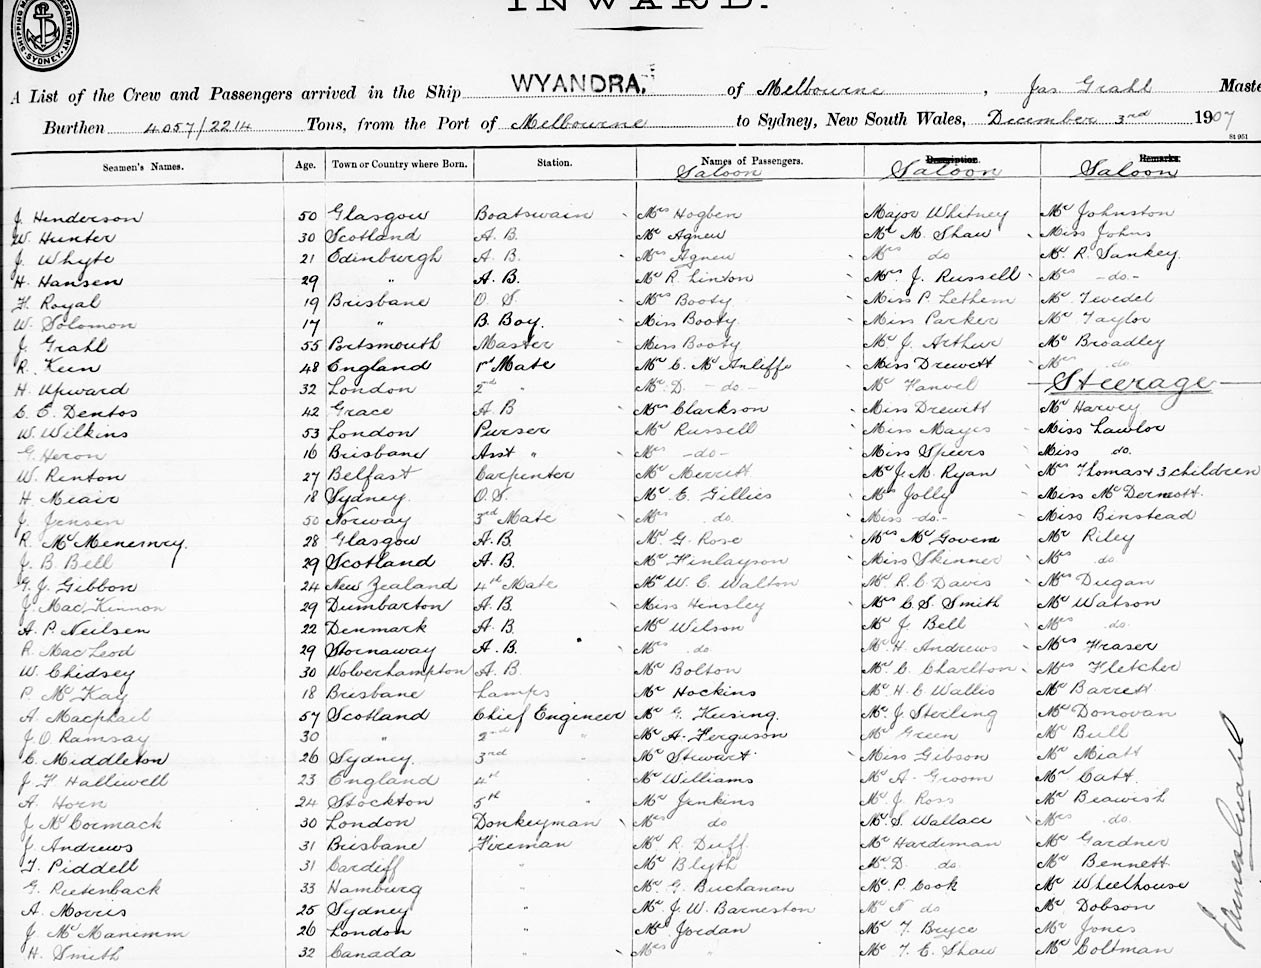 INWARD.
SHIPPING MA DEPARTMENT SYDNEY
A List of the Crew and Passengers arrived in the Ship WYANDRA, of Melbourne, Jas Grahl Maste
Burthen 4057/2214 Tons, from the Port of Melbourne to Sydney, New South Wales, December 3rd 1907
St 951
Seamen's Names. Age. Town or Country where Born. Station. Names of Passengers. Description. Remarks.
Saloon Saloon Saloon
J. Henderson 50 Glasgow Boatswain Mrs Hogben Major Whitney Mr Johnston
W. Hunter 30 Scotland A. B. Mr Agnew Mr M. Shaw Miss Johns
J. Whyte 21 Edinburgh A. B. Mrs Agnew Mrs do Mr R. Sankey
H. Hansen 29 " A. B. Mr R. Linton Mrs J. Russell Mrs -do-
F. Royal 19 Brisbane O. S Mrs Booty Miss P. Lethem Mr Tevedel
W. Solomon 17 " B. Boy. Miss Booty Miss Parker Mr Taylor
J. Grahl 55 Portsmouth Master Miss Booty Mr J. Arthur Mr Broadley
R. Keen 48 England 1st Mate Mr C. McAuliffe Miss Drewett Mrs do
H. Upward 32 London 2nd " Mr D. -do- Mr Hanvel Steerage
C. E. Dentos 42 Grace A. B Mrs Clarkson Miss Drewitt Mr Harvey
W. Wilkins 53 London Purser Mr Russell Miss Mayes Miss Lawlor
G. Heron 16 Brisbane Asst " Mrs -do- Miss Spiers Miss do.
W. Renton 27 Belfast Carpenter Mr Merrett Mr J. M. Ryan Mrs Thomas & 3 children
H. Meair 18 Sydney O. S. Mr E. Gillies Mrs Jolly Miss McDermott.
J. Jensen 50 Norway 3rd Mate Mrs do. Miss -do.- Miss Binstead
R. McMenemey. 28 Glasgow A. B. Mr G. Rose Mrs McGovern Mr Riley
J. B. Bell 29 Scotland A. B. Mr Finlayson Miss Skinner Mrs do
G. J. Gibbon 24 New Zealand 4th Mate Mr W. E. Walton Mr R. C. Davis Mrs Dugan
J. MacKinnon 29 Dumbarton A. B. Miss Hensley Mrs C. S. Smith Mr Watson
A. P. Neilsen 22 Denmark A. B. Mr Wilson Mr J. Bell Mrs do.
R. MacLeod 29 Stornaway A. B. Mrs do Mr H. Andrews Mrs Fraser
W. Chidsey 30 Wolverhampton A. B. Mr Bolton Mr C. Charlton Mrs Fletcher
P. McKay 18 Brisbane Lamps Mr Hockins Mr H. E. Wallis Mr Barrett
A. Macphail 57 Scotland Chief Engineer Mr G. Keising. Mr J. Sterling Mr Donovan
J. O. Ramsay 30 " 2nd " Mr A. Ferguson Mr Green Mr Bull
C. Middleton 26 Sydney. 3rd " Mr Stewart Miss Gibson Mr Miatt
J. F. Halliwell 23 England 4th Mr Williams Mr A. Groom Mr Catt.
A. Horn 24 Stockton 5th " Mr Jenkins Mr J. Ross Mr Beawish
J. McCormack 30 London Donkeyman Mrs do Mr S. Wallace Mrs do.
J. Andrews 31 Brisbane Fireman Mr R. Duff Mr Hardiman Mr Gardner
T. Piddell 31 Cardiff " Mr Blyth Mr D. do. Mr Bennett
G. Rietenback 33 Hamburg " Mr G. Buchanan Mr P. Cook Mr Wheelhouse
A. Morris 25 Sydney " Mr J. W. Barneston Mr N do Mr Dobson
J. McManimm 26 London " Mr Jordan Mr T. Bryce Mr Jones
H. Smith 32 Canada " Mrs " Mr T. E. Shaw Mr Coltman
James Grahl